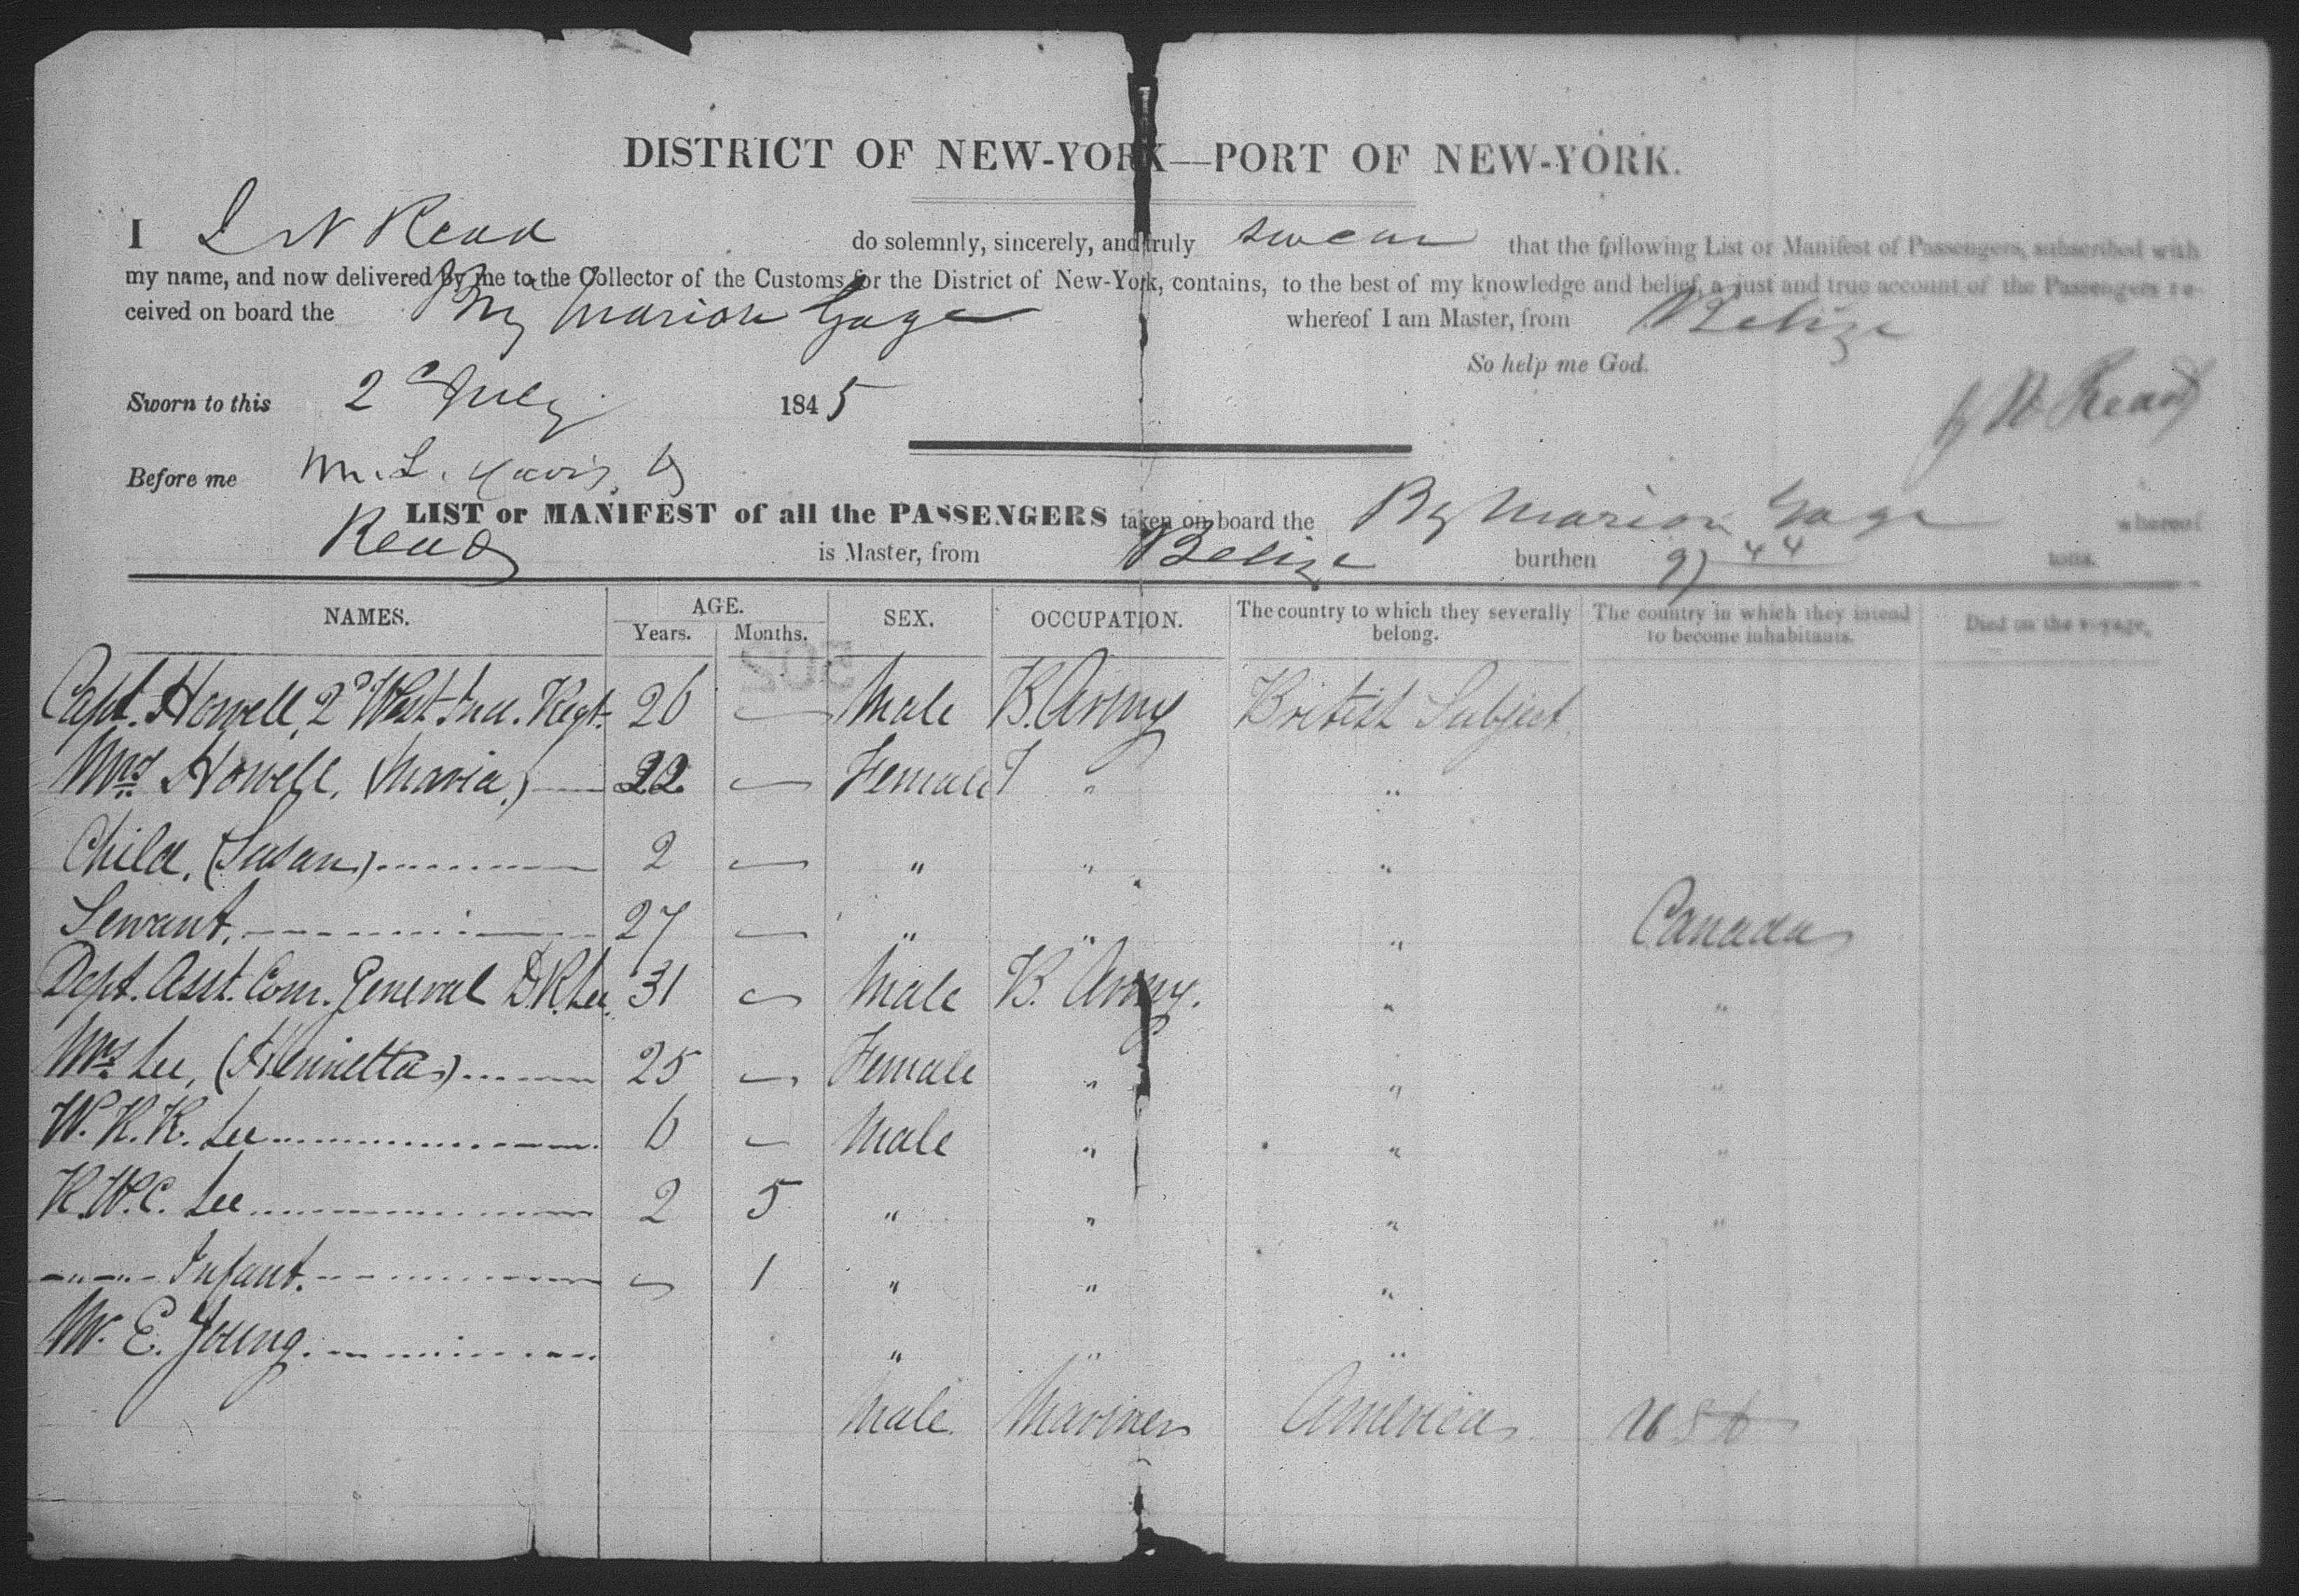 DISTRICT OF NEW-YORK—PORT OF NEW-YORK.
I Read do solemnly, sincerely, and truly swear that the following List or Manifest of Passengers, subscribed with
my name, and now delivered by me to the Collector of the Customs for the District of New-York, contains, to the best of my knowledge and belief, a just and true account of the Passengers re-
ceived on board the Brig Marion Gage whereof I am Master, from Belize
So help me God.
Sworn to this 2d July 1845
Read
Before me M. L. Davis,
LIST or MANIFEST of all the PASSENGERS taken on board the Bg Marion Gage whereof
Read is Master, from Belize burthen 44 tons.
NAMES. AGE. SEX. OCCUPATION. The country to which they severally belong. The country in which they intend to become inhabitants. Died on the voyage.
Years. Months.
Capt. Howell, 2d West Ind. Regt. 26 — Male B. Army British Subject
Mrs Howell, (Maria.) 22 — Female " "
Child, (Susan) 2 — " " "
Servant. 27 — " " " Canada
Dept. Asst. Com. General D.R. Lee. 31 — Male B. Army. " "
Mrs Lee, (Henrietta) 25 — Female " " "
W. R. R. Lee 6 — Male " " "
R. W. C. Lee 2 5 " " " "
" " " Infant. — 1 " " "
Mr. E. Young. " " "
Male. Mariner America USA
502